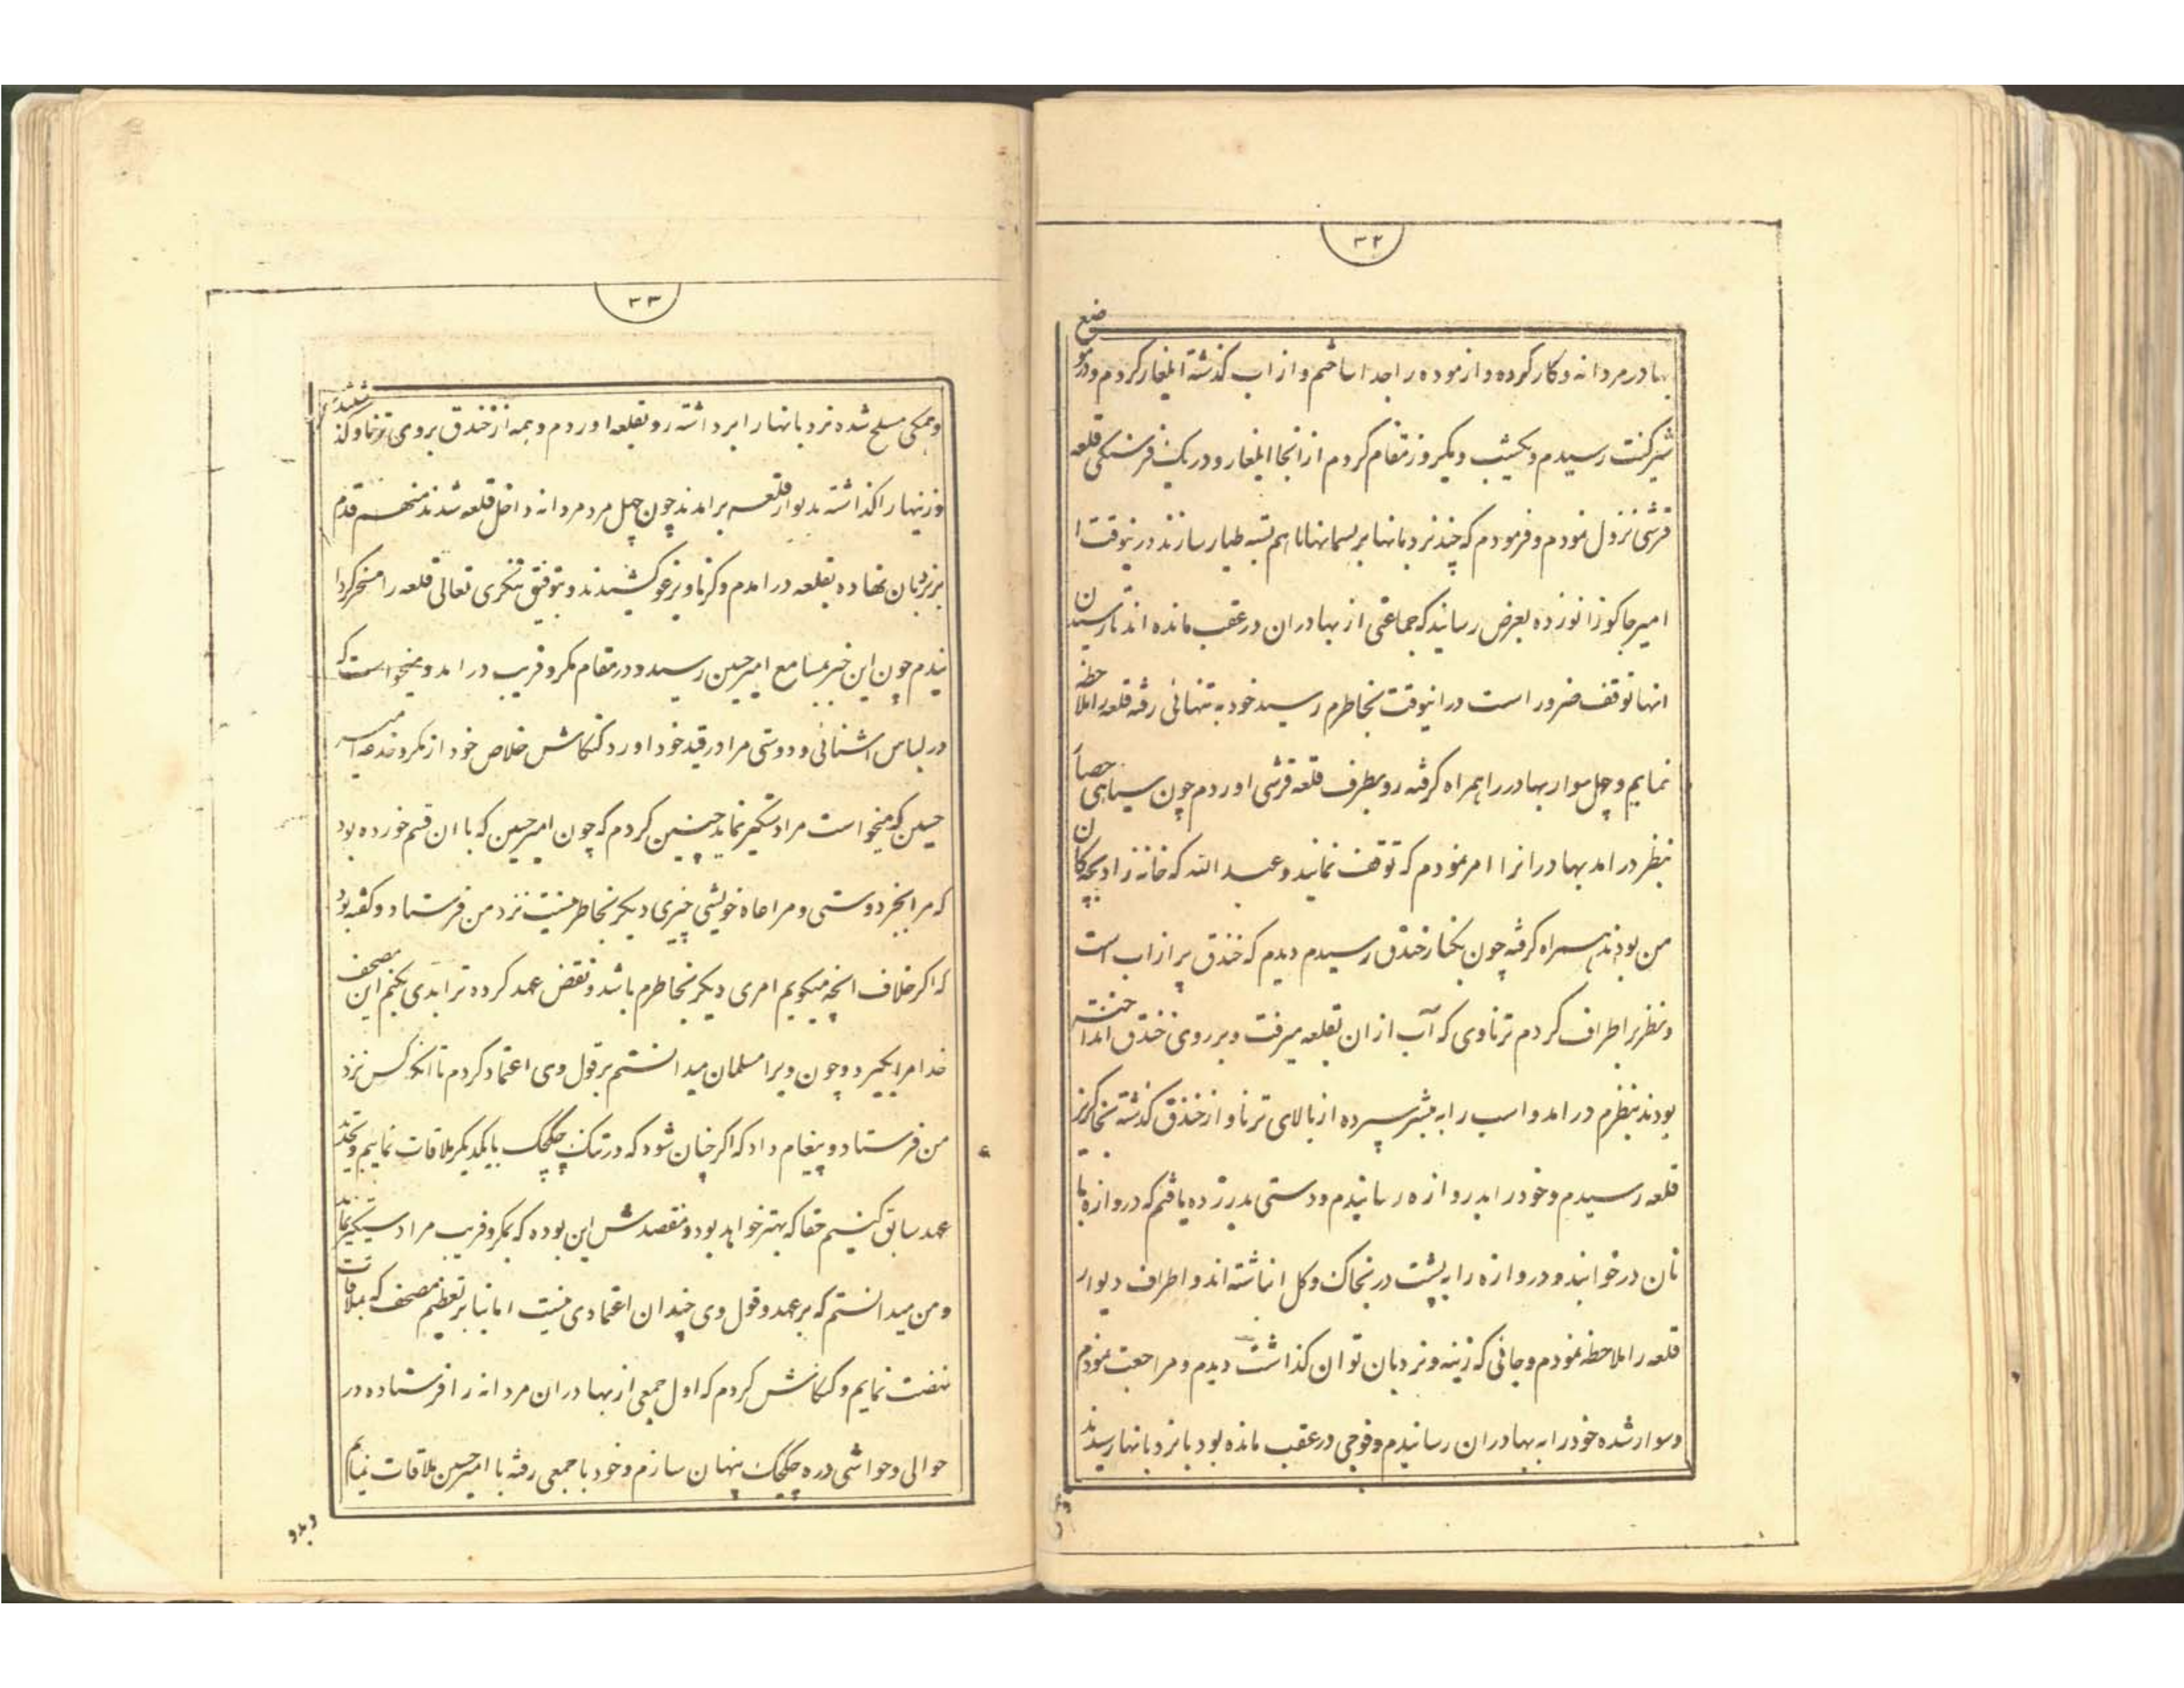 ۳۲
بهادر مردانه و کار کرده و ازموده را جدا ساختم و از اب گذشته ایلغار کردم و در موضع
شیرکنت رسیدم و یکشب و یکروز مقام کردم از انجا ایلغار و در یک فرسنگی قلعه
قرشی نزول نمودم و فرمودم که چند نردبانها بریسمانها باهم بسته طیار سازند درینوقت
امیر جاکو زانو زده بعرض رسانید که جماعتی از بهادران در عقب مانده اند تا رسیدن
انها توقف ضرور است در اینوقت بخاطرم رسید خود به تنهائی رفته قلعه را ملاحظه
نمایم و چهل سوار بهادر را همراه گرفته رو بطرف قلعه قرشی اوردم چون سیاهی حصار
بنظر در امد بهادرانرا امر نمودم که توقف نمایند و عبد الله که خانه زاد بچکان
من بودند همراه گرفته چون بکنار خندق رسیدم دیدم که خندق پر از اب است
و نظر بر اطراف کردم ترناوی که آب از ان بقلعه میرفت و بر روی خندق انداخته
بودند بنظرم در امد و اسب را به مبشر سپرده از بالای ترناو از خندق گذشته بخاکریز
قلعه رسیدم و خود را بدروازه رسانیدم و دستی بدر زده یافتم که دروازه با
نان در خوابند و دروازه را به پشت در بخاک و گل انباشته اند و اطراف دیوار
قلعه را ملاحظه نمودم و جائی که زینه و نردبان توان گذاشت دیدم و مراجعت نمودم
و سوار شده خود را به بهادران رسانیدم و فوجی در عقب مانده بود با نردبانها رسیدند
۳۳
و همگی مسلح شده نردبانها را برداشته رو بقلعه اوردم و همه از خندق بروی ترناو گذشتند
و زینها را گذاشته بدیوار قلعه برامدند چون چهل مرد مردانه داخل قلعه شدند منهم قدم
بر نردبان نهاده بقلعه در امدم و کرنا و برغو کشیدند و بتوفیق تنکری تعالی قلعه را مسخر گردا
نیدم چون این خبر بمسامع امیر حسین رسید و در مقام مکر و فریب در امد و میخواست که
در لباس اشنائی و دوستی مرا در قید خود اورد کنکاش خلاص خود از مکر و خدعه امیر
حسین که میخواست مرا دستگیر نماید چنین کردم که چون امیر حسین که با ان قسم خورده بود
که مرا بجز دوستی و مراعاه خویشی چیزی دیگر بخاطر نیست نزد من فرستاد و گفته بود
که اگر خلاف انچه میگویم امری دیگر بخاطرم باشد و نقض عهد کرده ترا بدی بکنم این مصحف
خدا مرا بگیرد و چون ویرا مسلمان میدانستم بر قول وی اعتماد کردم تا انکه کس نزد
من فرستاد و پیغام داد که اگر چنان شود که در تنک چکچک بایکدیگر ملاقات نماییم و تجدید
عهد سابق کنیم حقا که بهتر خواهد بود و مقصدش این بوده که بمکر و فریب مرا دستگیر نماید
و من میدانستم که بر عهد و قول وی چندان اعتمادی نیست اما بنا بر تعظیم مصحف که بملاقات
نهضت نمایم و کنکاش کردم که اول جمعی از بهادران مردانه را فرستاده در
حوالی و حواشی دره چکچک پنهان سازم و خود با جمعی رفته با امیر حسین ملاقات نمایم
و بدو